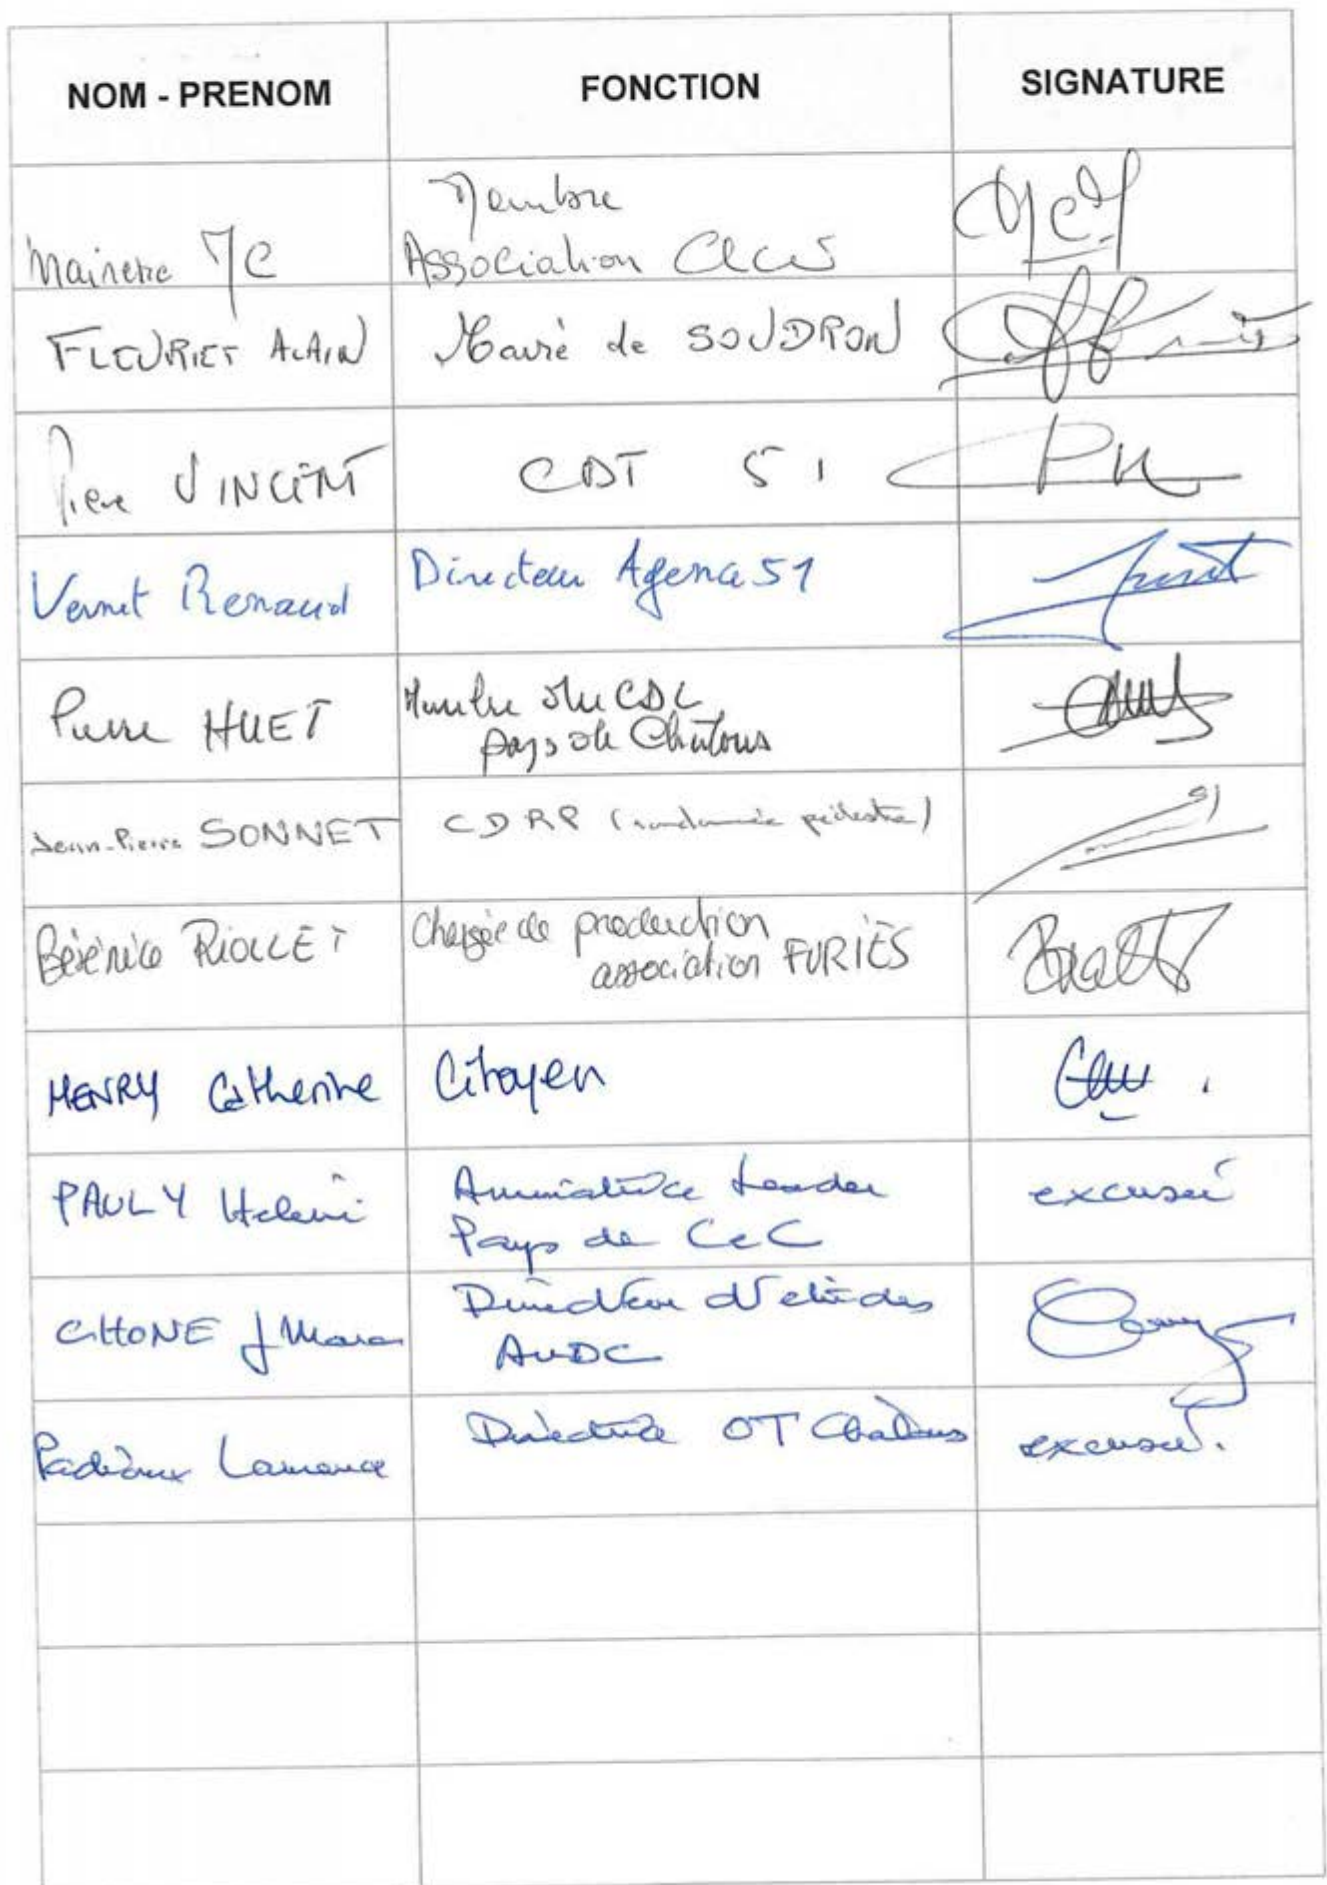 NOM - PRENOM FONCTION SIGNATURE
Membre
MC Association
FLEURIET ALAIN Maire de SOUDRON
Pierre VINCENT CDT 51
Vernet Renaud Directeur Agence 51
Pierre HUET Membre du CDC
pays de Chalons
Jean-Pierre SONNET CDRP (randonnée pédestre)
Bérénice RIOLLET Chargée de production
association FURIES
HENRY Catherine Citoyen
PAULY Helene Animatrice Leader excusée
Pays de CeC
CHONE J Marc Directeur d'etudes
AUDC
Laurence Directrice OT Chalons excusée.